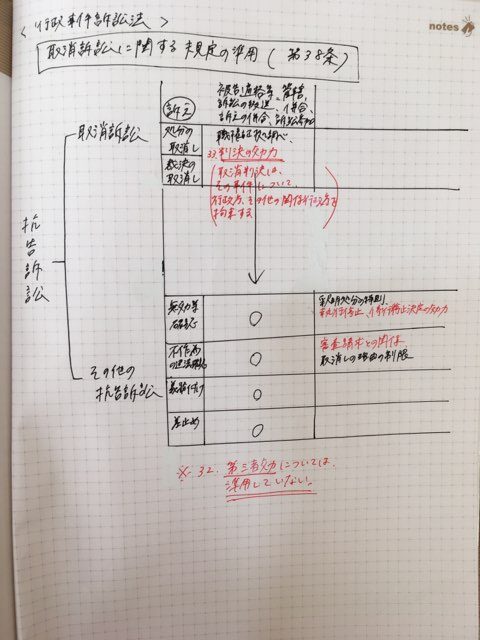 notes
<行政事件訴訟法>
取消訴訟に関する規定の準用(第38条)
訴え
被告適格等、管轄、
訴訟の移送、併合、
訴えの併合、訴訟参加
職権証拠調べ、
取消訴訟
処分の
取消し
裁決の
取消し
33判決の効力
(取消判決は、
その事件について、
行政庁その他の関係行政庁を
拘束する)
抗告訴訟
無効等
確認
○
釈明処分の特則、
執行停止、執行停止決定の効力
不作為
の違法確認
○
審査請求との関係、
取消しの理由の制限
その他の
抗告訴訟
義務付け
○
差止め
○
※ 32. 第三者効については、
準用していない。